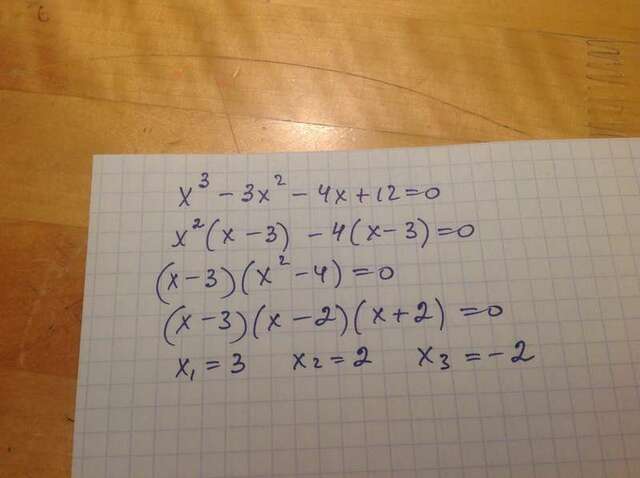 x³ - 3x² - 4x + 12 = 0
x²(x - 3) - 4(x - 3) = 0
(x - 3)(x² - 4) = 0
(x - 3)(x - 2)(x + 2) = 0
x₁ = 3 x₂ = 2 x₃ = -2